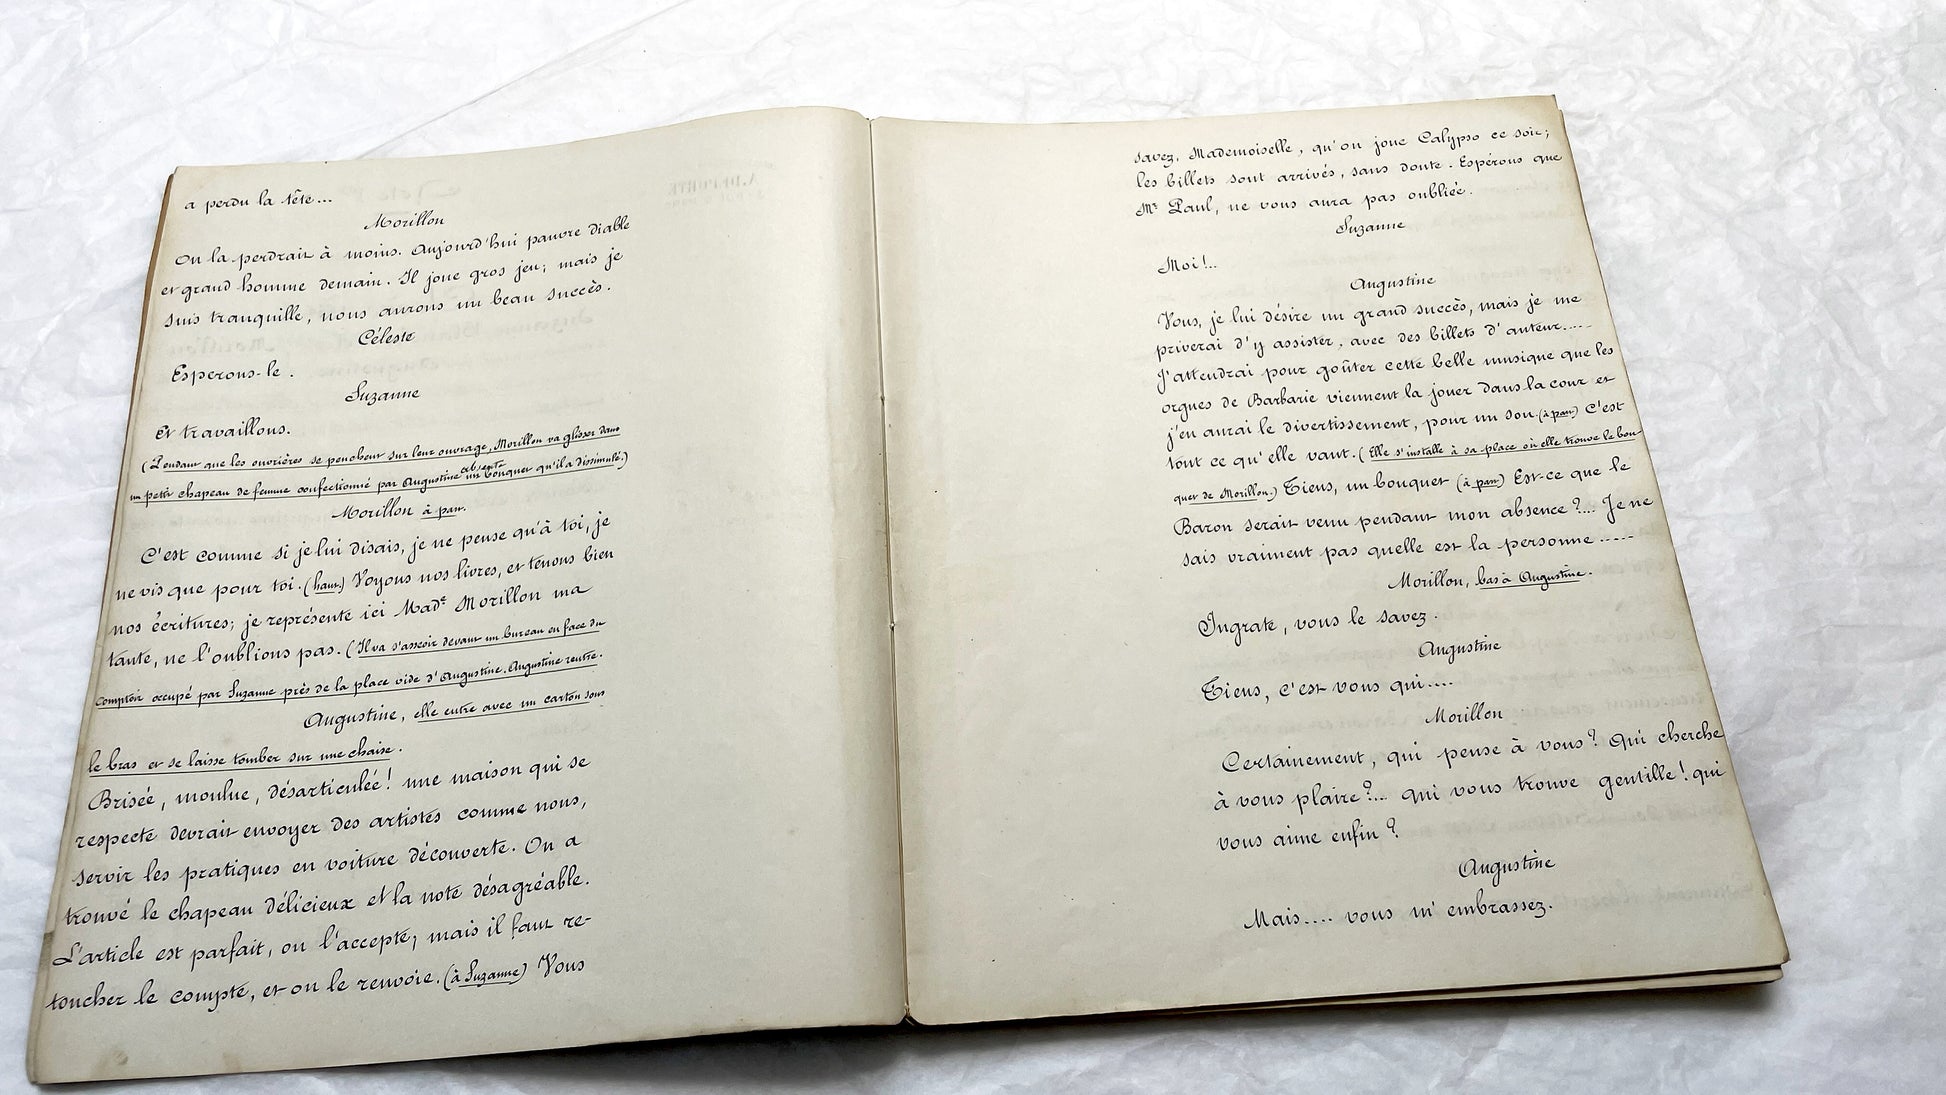 a perdu la tête...
Morillon
On la perdrait à moins. Aujourd'hui pauvre diable
et grand homme demain. Il joue gros jeu; mais je
suis tranquille, nous aurons un beau succès.
Céleste
Esperons-le.
Suzanne
Et travaillons.
(Pendant que les ouvrières se penchent sur leur ouvrage, Morillon va glisser dans
un petit chapeau de femme confectionné par Augustine absente un bouquet qu'il a dissimulé.)
Morillon à part.
C'est comme si je lui disais, je ne pense qu'à toi, je
ne vis que pour toi. (haut.) Voyons nos livres, et tenons bien
nos écritures; je représente ici Made Morillon ma
tante, ne l'oublions pas. (Il va s'asseoir devant un bureau en face du
comptoir occupé par Suzanne près de la place vide d'Augustine. Augustine rentre.
Augustine, elle entre avec un carton sous
le bras et se laisse tomber sur une chaise.
Brisée, moulue, désarticulée! une maison qui se
respecte devrait envoyer des artistes comme nous,
servir les pratiques en voiture découverte. On a
trouvé le chapeau délicieux et la note désagréable.
L'article est parfait, on l'accepte; mais il faut re-
toucher le compte, et on le renvoie. (à Suzanne) Vous
savez, Mademoiselle, qu'on joue Calypso ce soir;
les billets sont arrivés, sans doute. Espérons que
Mr Paul, ne vous aura pas oubliée.
Suzanne
Moi!..
Augustine
Vous, je lui désire un grand succès, mais je me
priverai d'y assister, avec des billets d'auteur.....
J'attendrai pour goûter cette belle musique que les
orgues de Barbarie viennent la jouer dans la cour et
j'en aurai le divertissement, pour un sou. (à part) C'est
tout ce qu'elle vaut. (Elle s'installe à sa place où elle trouve le bou-
quet de Morillon.) Tiens, un bouquet (à part) Est-ce que le
Baron serait venu pendant mon absence?.... Je ne
sais vraiment pas quelle est la personne .....
Morillon, bas à Augustine.
Ingrate, vous le savez.
Augustine
Tiens, c'est vous qui....
Morillon
Certainement, qui pense à vous? Qui cherche
à vous plaire?... qui vous trouve gentille! qui
vous aime enfin?
Augustine
Mais.... vous m'embrassez.